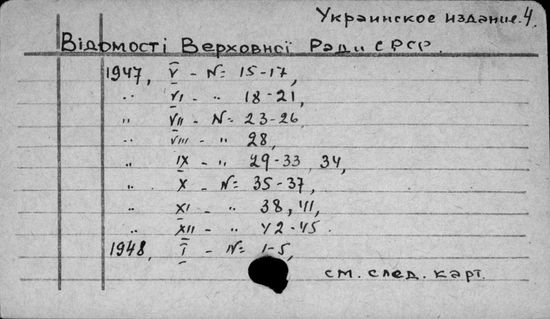 Украинское издание. 4.
Відомості Верховної Ради СРСР.
1947, V - N= 15-17,
" VI - " 18-21,
" VII - N= 23-26
" VIII - " 28,
" IX - " 29-33, 34,
" X - N= 35-37,
" XI - " 38, 41,
" XII - " 42-45.
1948, I - N= 1-5,
см. след. карт.